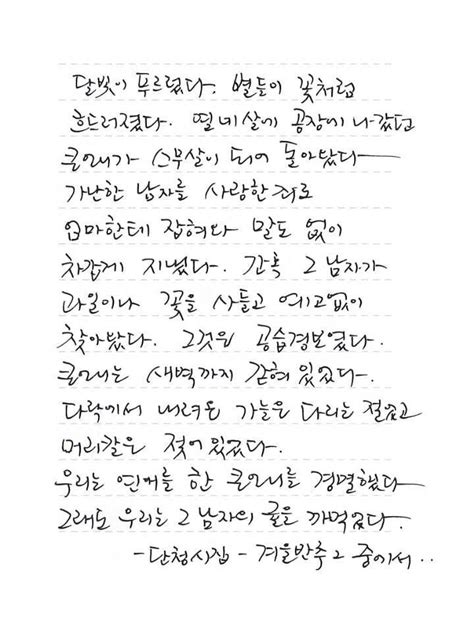 달빛이 푸르렀다. 별들이 꽃처럼
흐드러졌다. 열네살에 공장에 나갔던
큰언니가 스무살이 되어 돌아왔다
가난한 남자를 사랑한 죄로
엄마한테 잡혀와 말도 없이
차갑게 지냈다. 간혹 그 남자가
과일이나 꽃을 사들고 예고없이
찾아왔다. 그것은 공습경보였다.
큰언니는 새벽까지 갇혀 있었다.
다락에서 내려온 가늘은 다리는 절었고
머리칼은 젖어 있었다.
우리는 연애를 한 큰언니를 경멸했다
그래도 우리는 그 남자의 귤을 까먹었다.
-단청시집 - 겨울반추2 중에서..